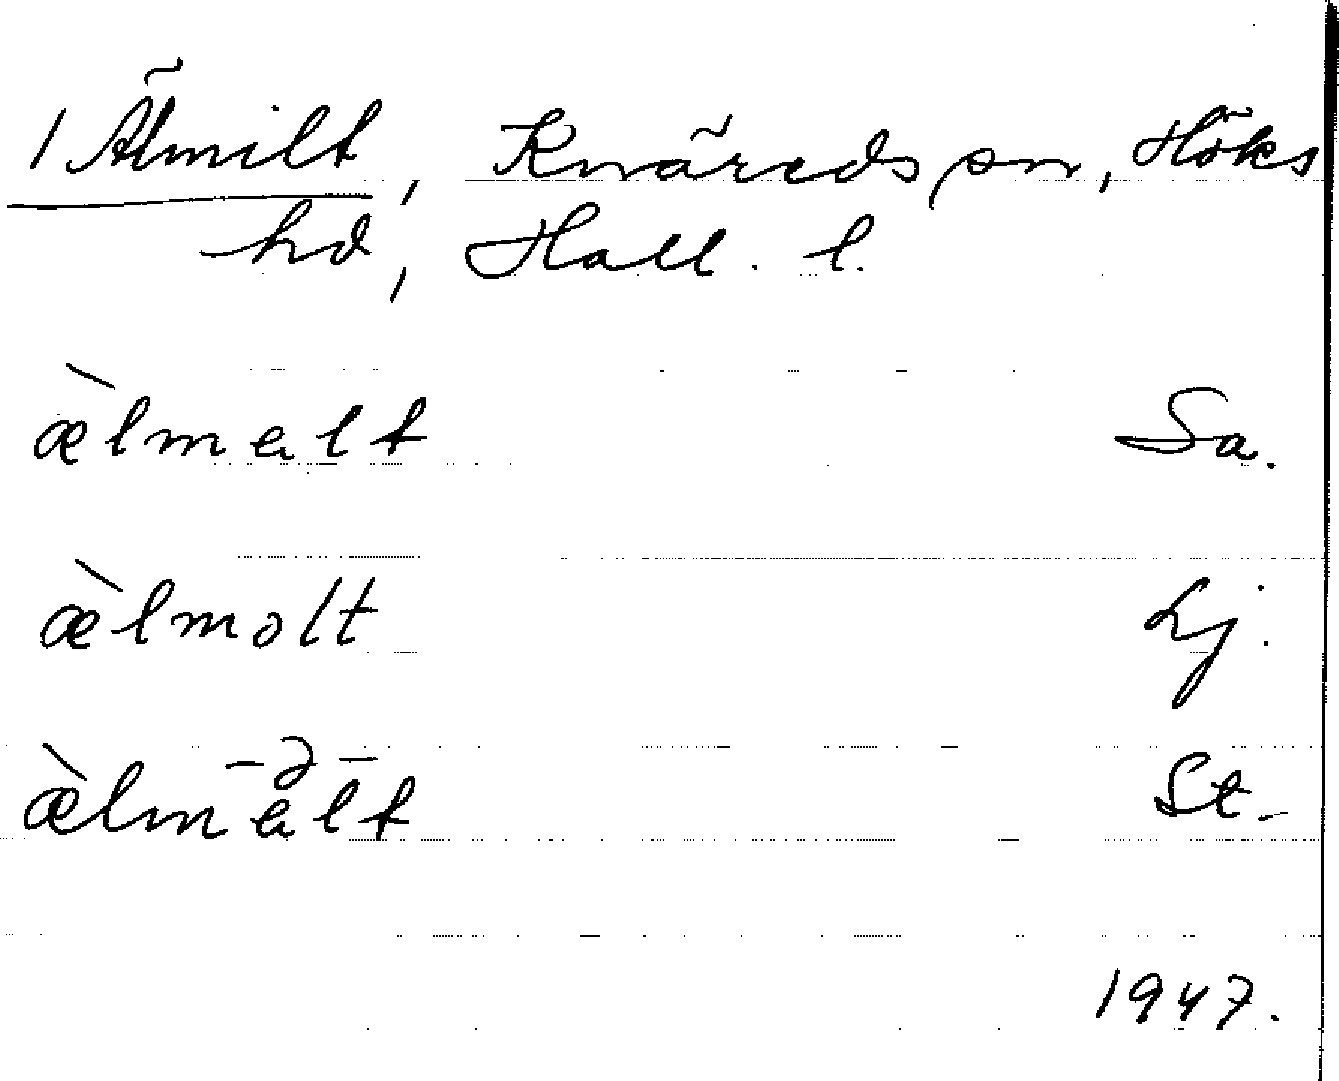 1 Älmilt, Knäreds sn, Höks
hd, Hall. l.
æ̀lmalt Sa.
æ̀lmolt Lj.
-ə-
æ̀lmalt St.
1947.